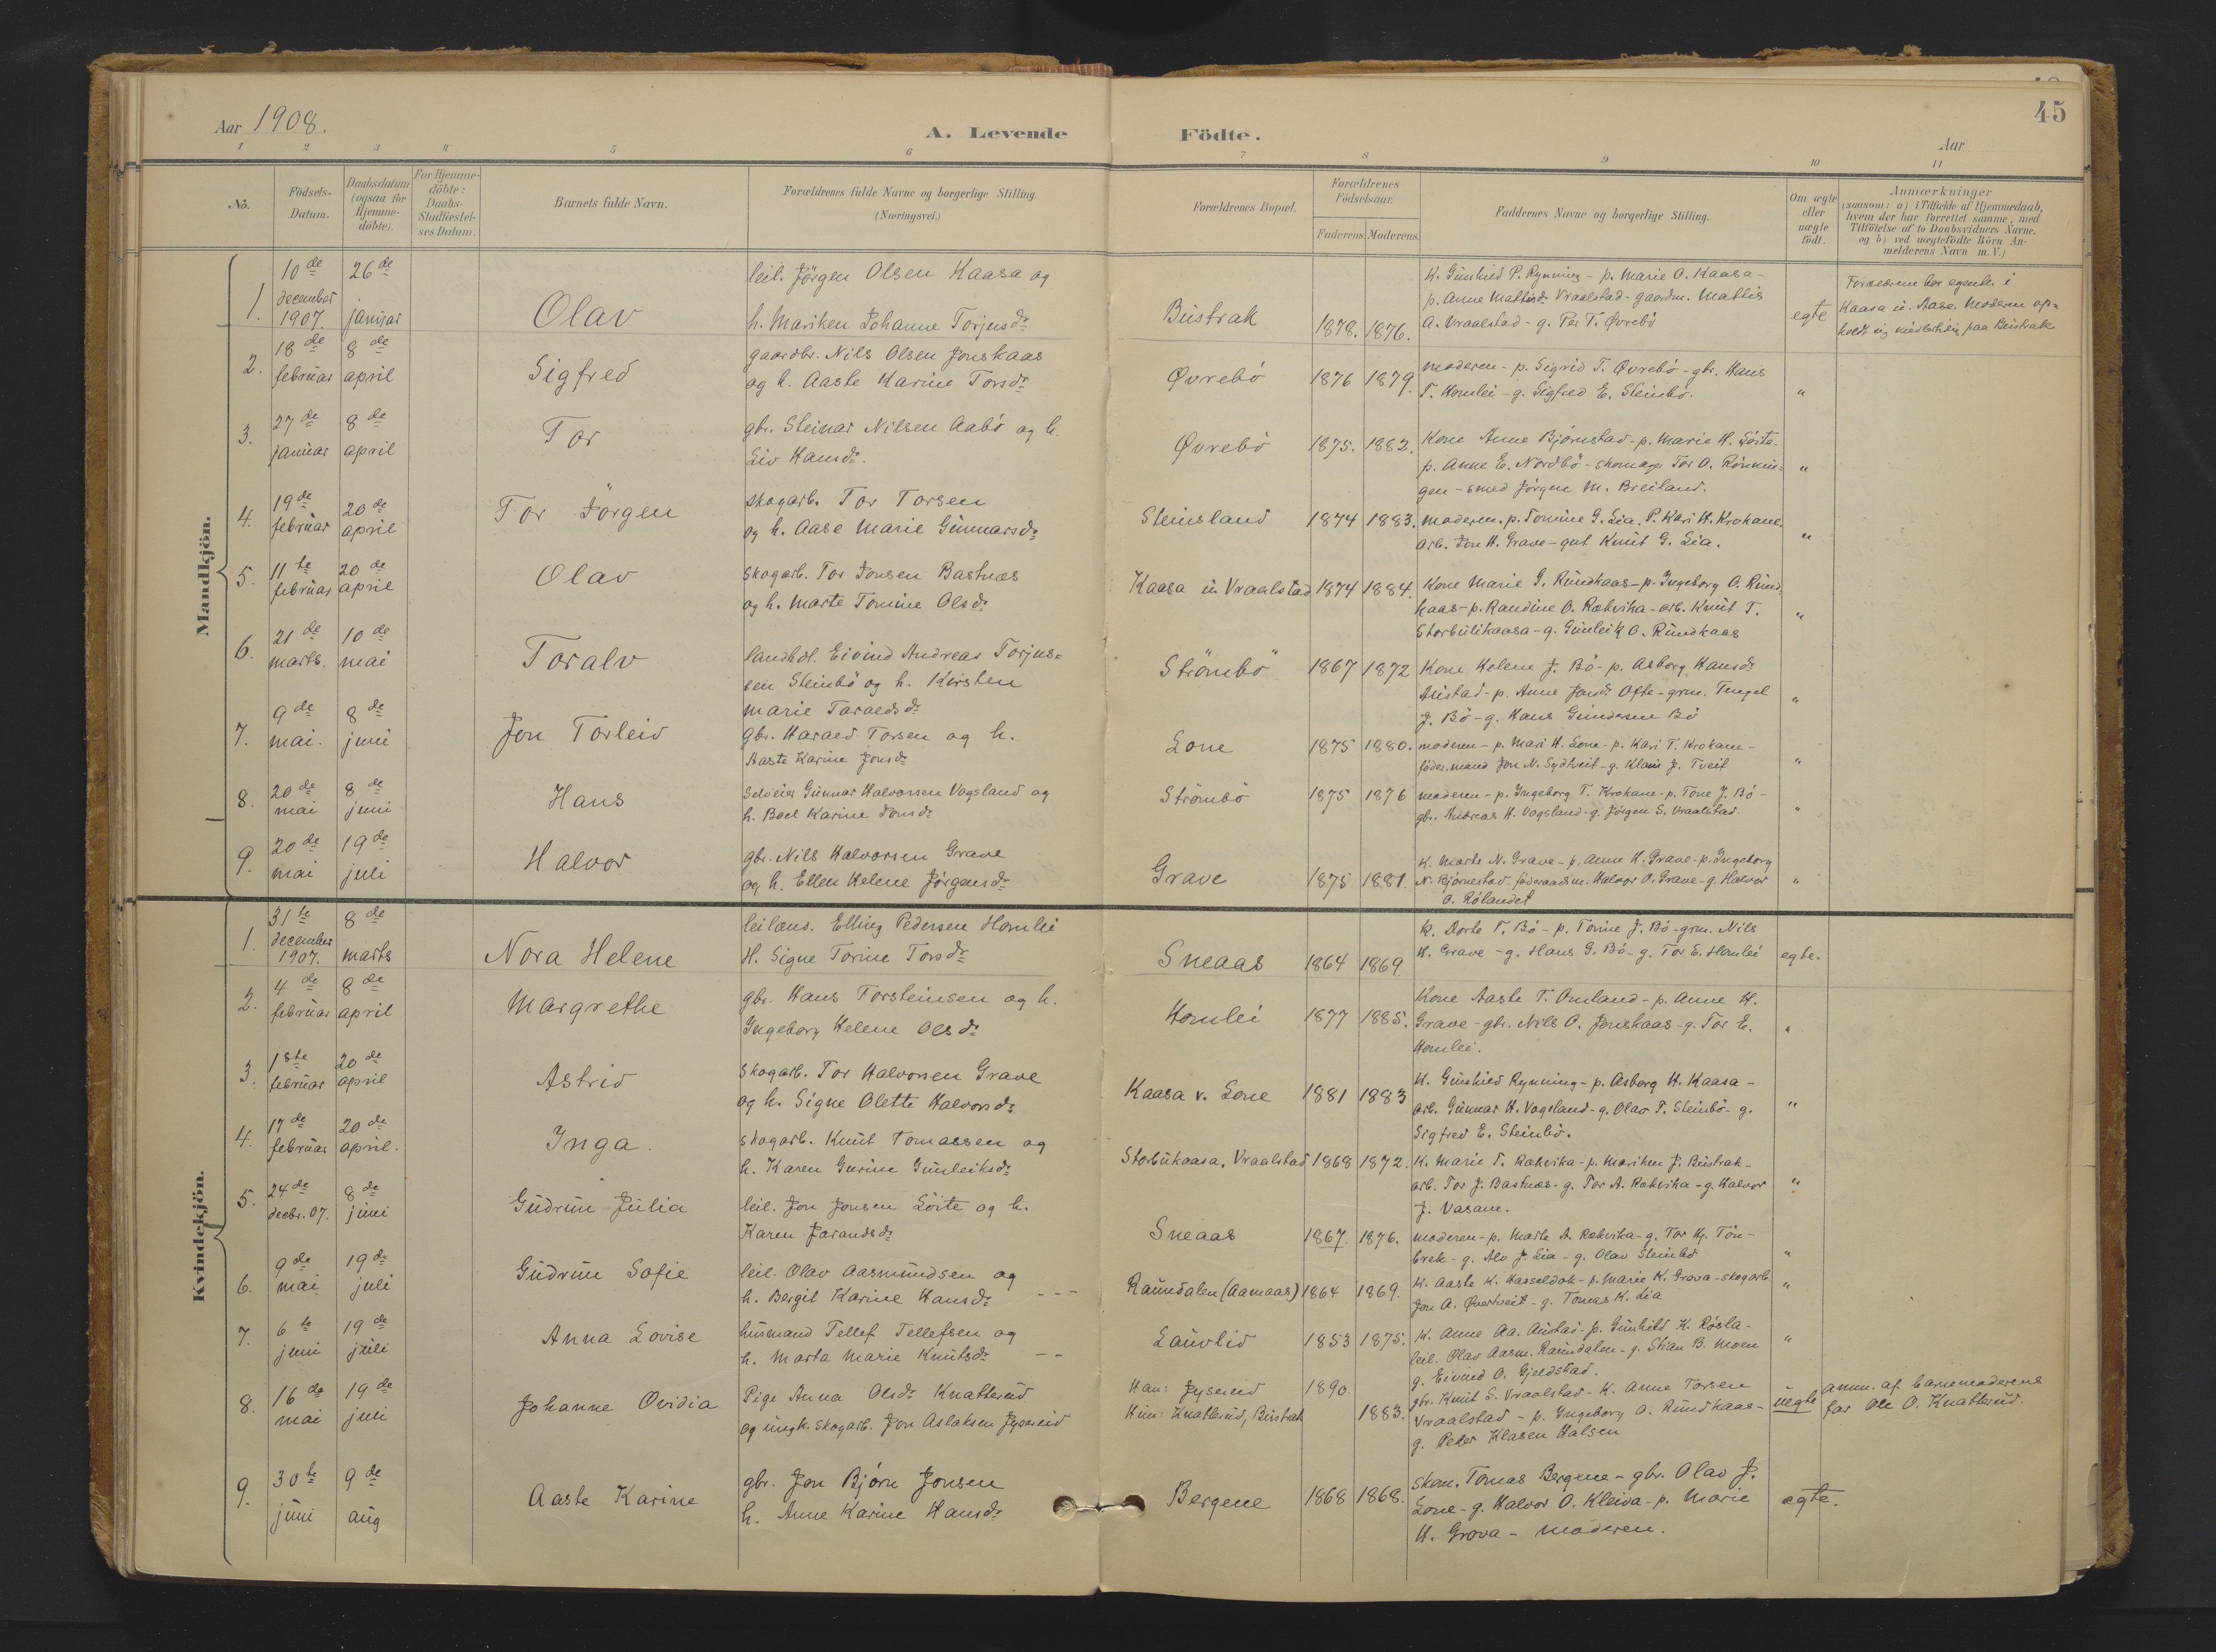 45
Aar 1908.
A. Levende Födte.
Aar
1 2 3 4 5 6 7 8 9 10 11
No.
Födsels-Datum.
Daabsdatum (ogsaa for Hjemme-döbte).
For Hjemme-döbte: Daabs-Stadfæstel-ses Datum.
Barnets fulde Navn.
Forældrenes fulde Navne og borgerlige Stilling.
(Næringsvei.)
Forældrenes Bopæl.
Forældrenes Födselsaar.
Faderens. Moderens.
Faddernes Navne og borgerlige Stilling.
Om ægte eller uægte födt.
Anmærkninger
(saasom: a) i Tilfælde af Hjemmedaab,
hvem der har forrettet samme, med
Tilföielse af to Daabsvidners Navne.
og b) ved uægtefödte Börn An-
melderens Navn m.V.)
Mandkjön.
1. 10de december 1907. 26de januar
Olav
leil. Jörgen Olsen Kaasa og
h. Mariken Johanne Torjusdr
Büstrak 1878. 1876.
K. Günhild P. Rynning - p. Marie O. Kaasa -
p. Anne Mattisdr Vraalstad - gaardm. Mattis
A. Vraalstad - g. Per T. Øvrebö
egte
Forældrene bor egentl. i
Kaasa ü. Aase. Moderen op=
holdt sig midlertidig paa Büstrak
2. 18de februar 8de april
Sigfred
gaardbr. Nils Olsen Jonskaas
og h. Aaste Karine Torsdr
Øvrebö 1876 1879.
moderen - p. Sigrid T. Øvrebö - gbr. Hans
T. Homlei - g. Sigfred E. Steinbö.
"
3. 27de januar 8de april
Tor
gbr. Steinar Nilsen Aabö og h.
Liv Hansdr.
Øvrebö 1875. 1882.
Kone Anne Bjørnstad - p. Marie H. Löite -
p. Anne E. Nordbö - skomag. Tor O. Rönnin=
gen - smed Jörgen M. Breiland.
"
4. 19de februar 20de april
Tor Jörgen
skogarb. Tor Torsen
og h. Aase Marie Günnarsdr
Steinsland 1874 1883.
moderen. p. Tomine G. Lia. P. Kari H. Krokane.
arb. Jon H. Grave - gut Knüt G. Lia.
"
5. 11te februar 20de april
Olav
skogarb. Tor Jonsen Bastnæs
og h. Marte Tomine Olsdr
Kaasa ü. Vraalstad 1874 1884.
Kone Marie G. Ründkaas - p. Ingeborg O. Ründ=
kaas - p. Randine O. Rækvika - arb. Knüt T.
Storbülikaasa - g. Günleik O. Ründkaas
"
6. 21de marts. 10de mai
Toralv
landhdl. Eivind Andreas Torjus=
sen Steinbö og h. Kirsten
Marie Taraldsdr
Strömbö 1867 1872
Kone Helene J. Bö - p. Asborg Hansdr
Aüstad - p. Anne Jonsdr Ofte - grm. Tengel
J. Bö - g. Hans Gündersen Bö
"
7. 9de mai. 8de juni
Jon Torleiv
gbr. Harald Torsen og h.
Aaste Karine Jonsdr
Lone 1875 1880.
moderen - p. Mari H. Lone - p. Kari T. Krokane -
föder.mand Jon N. Sydtveit - g. Klaus J. Tveit
"
8. 20de mai 8de juni
Hans
Selveier Günnar Halvorsen Vogsland og
h. Boel Karine Tomsdr
Strömbö 1875 1876
moderen - p. Ingeborg T. Krokane - p. Tone J. Bö -
gbr. Andreas H. Vogsland - g. Jörgen S. Vraalstad.
"
9. 20de mai 19de juli
Halvor
gbr. Nils Halvorsen Grave
og h. Ellen Helene Jörgensdr
Grave 1875 1881.
K. Marte N. Grave - p. Anne H. Grave - p. Ingeborg
N. Bjørnestad - föderaadsm. Halvor O. Grave - g. Halvor
O. Rølandet
"
Kvindekjön.
1. 31te december 1907. 8de marts
Nora Helene
leilænd. Elling Pedersen Homlei
H. Signe Torine Torsdr
Sneaas 1864 1869
K. Dorte T. Bö - p. Tomine J. Bö - grm. Nils
H. Grave - g. Hans G. Bö - g. Tor E. Homlei
egte.
2. 4de februar 8de april
Margrethe
gbr. Hans Torsteinsen og h.
Ingeborg Helene Olsdr
Homlei 1877 1885.
Kone Aaste T. Omland - p. Anne H.
Grave - gbr. Nils O. Jonskaas - g. Tor E.
Homlei.
"
3. 1ste februar 20de april
Astrid
skogarb. Tor Halvorsen Grave
og h. Signe Olette Halvorsdr
Kaasa v. Lone 1881 1883
K. Günhild Rynning - p. Asborg H. Kaasa -
arb. Günnar H. Vogsland - g. Olav T. Steinbö - g.
Sigfred E. Steinbö.
"
4. 17de februar 20de april.
Inga.
skogarb. Knüt Tomassen og
h. Karen Gurine Günleiksdr
Storbükaasa, Vraalstad 1868 1872.
K. Marie T. Rækvika - p. Mariken J. Büstrak -
arb. Tor J. Bastnæs - g. Tor A. Rækvika - g. Halvor
J. Vasane.
"
5. 24de decbr. 07. 8de juni
Güdrün Jülia
leil. Jon Jonsen Löite og h.
Karen Jorandsdr
Sneaas 1867. 1876.
moderen - p. Marte A Rækvika - g. Tor Kj. Tön-
brek - g. Alv J. Lia - g. Olav Steinbö
"
6. 9de mai 19de juli
Güdrün Sofie
leil. Olav Aasmündsen og
h. Bergit Karine Hansdr - - -
Raündalen (Aamaas) 1864 1869.
K. Aaste K. Hasseldok - p. Marie K. Grova - skogarb.
Jon A. Øvertveit - g. Tomas K. Lia
"
7. 6te juni 19de juli
Anna Lovise
husmand Tellef Tellefsen og
h. Marta Marie Knütsdr - -
Laüvlid 1853 1875.
K. Anne Aa. Aüstad - p. Günhild K. Røsla-
leil. Olav Aasm. Raündalen - g. Stian B. Moen
g. Eivind O. Gjeldstad.
"
8. 16de mai 19de juli
Johanne Ovidia
Pige Anna Olsdr Knatterüd
og üngk. Skogarb. Jon Aslaksen Jyssereid
Han: Jysereid 1890.
Hün: Knatterüd, Büstrak 1883.
gbr. Knüt S. Vraalstad - K. Anne Torsen
Vraalstad - p. Ingeborg O. Ründkaas -
g. Peder Klasen Halsen
üegte
Anm. af barnemoderens
far Ole O. Knatterüd.
9. 30te juni 9de aug
Aaste Karine
gbr. Jon Bjørn Jonsen
h. Anne Karine Hansdr
Bergene 1868 1868.
Skom. Tomas Bergene - gbr. Olav J.
Lone - g. Halvor O. Kleiva - p. Marie
H. Grova - moderen.
egte.